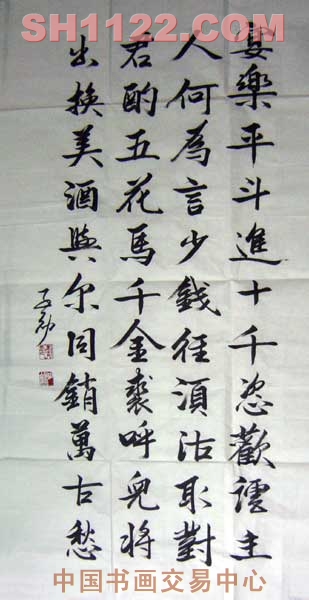 SH1122.COM
宴樂平斗進十千恣歡謔主
人何為言少錢徑須沽取對
君酌五花馬千金裘呼兒將
出換美酒與尔同銷萬古愁
中国书画交易中心